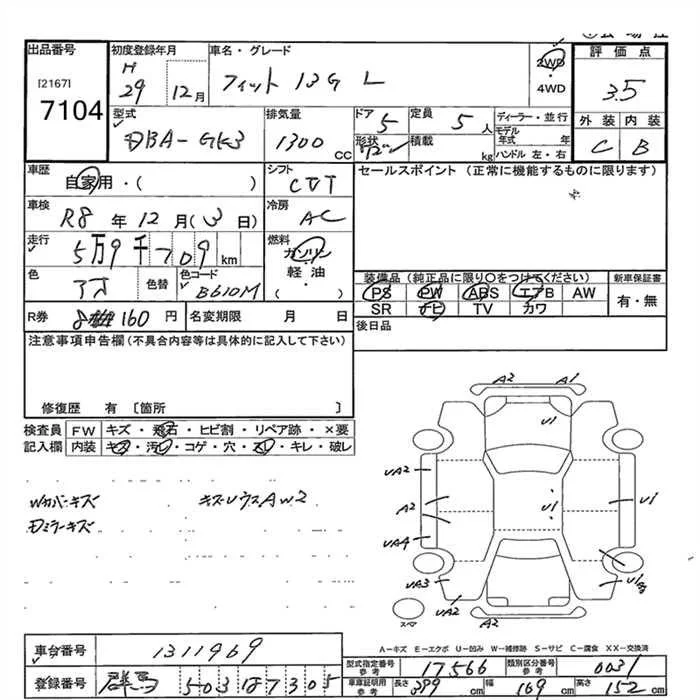 出品番号 初度登録年月 車名・グレード 2WD 評価点
[2167] H 29 12月 フィット 13G L ・ 3.5
7104 4WD
型式 排気量 ドア 定員 ディーラー・並行 外装 内装
DBA-GK3 1300 CC 5 5人 モデル年式 年 C B
形状 積載 kg ハンドル 左・右
車歴 自家用・( ) シフト CVT セールスポイント (正常に機能するものに限ります)
車検 R8年 12月 (3日) 冷房 AC
走行 5万9千709 km 燃料 ガソリン
軽油
( )
色 色替 色コード B610M
装備品 (純正品に限り○をつけてください) 新車保証書
PS PW ABS エアB AW 有・無
SR ナビ TV カワ
R券 160円 名変期限 月 日 後日品
注意事項申告欄(不具合内容等は具体的に記入して下さい)
修復歴 有 〔箇所 〕
検査員 FW キズ・飛石・ヒビ割・リペア跡・×要
記入欄 内装 キズ・汚レ・コゲ・穴・スレ・キレ・破レ
Wカバーキズ キズUウスAW2
Dミラーキズ
A2 A1
U1
UA2
A2 U1 U1
UA4
UA3
UA2 A2
スペア
A-キズ E-エクボ U-凹み W-補修跡 S-サビ C-腐食 XX-交換済
車台番号 1311969
型式指定番号 参考 17566 類別区分番号 参考 0031
登録番号 群馬 503 は 7305
車庫証明用 参考 長さ 399 cm 幅 169 cm 高さ 152 cm